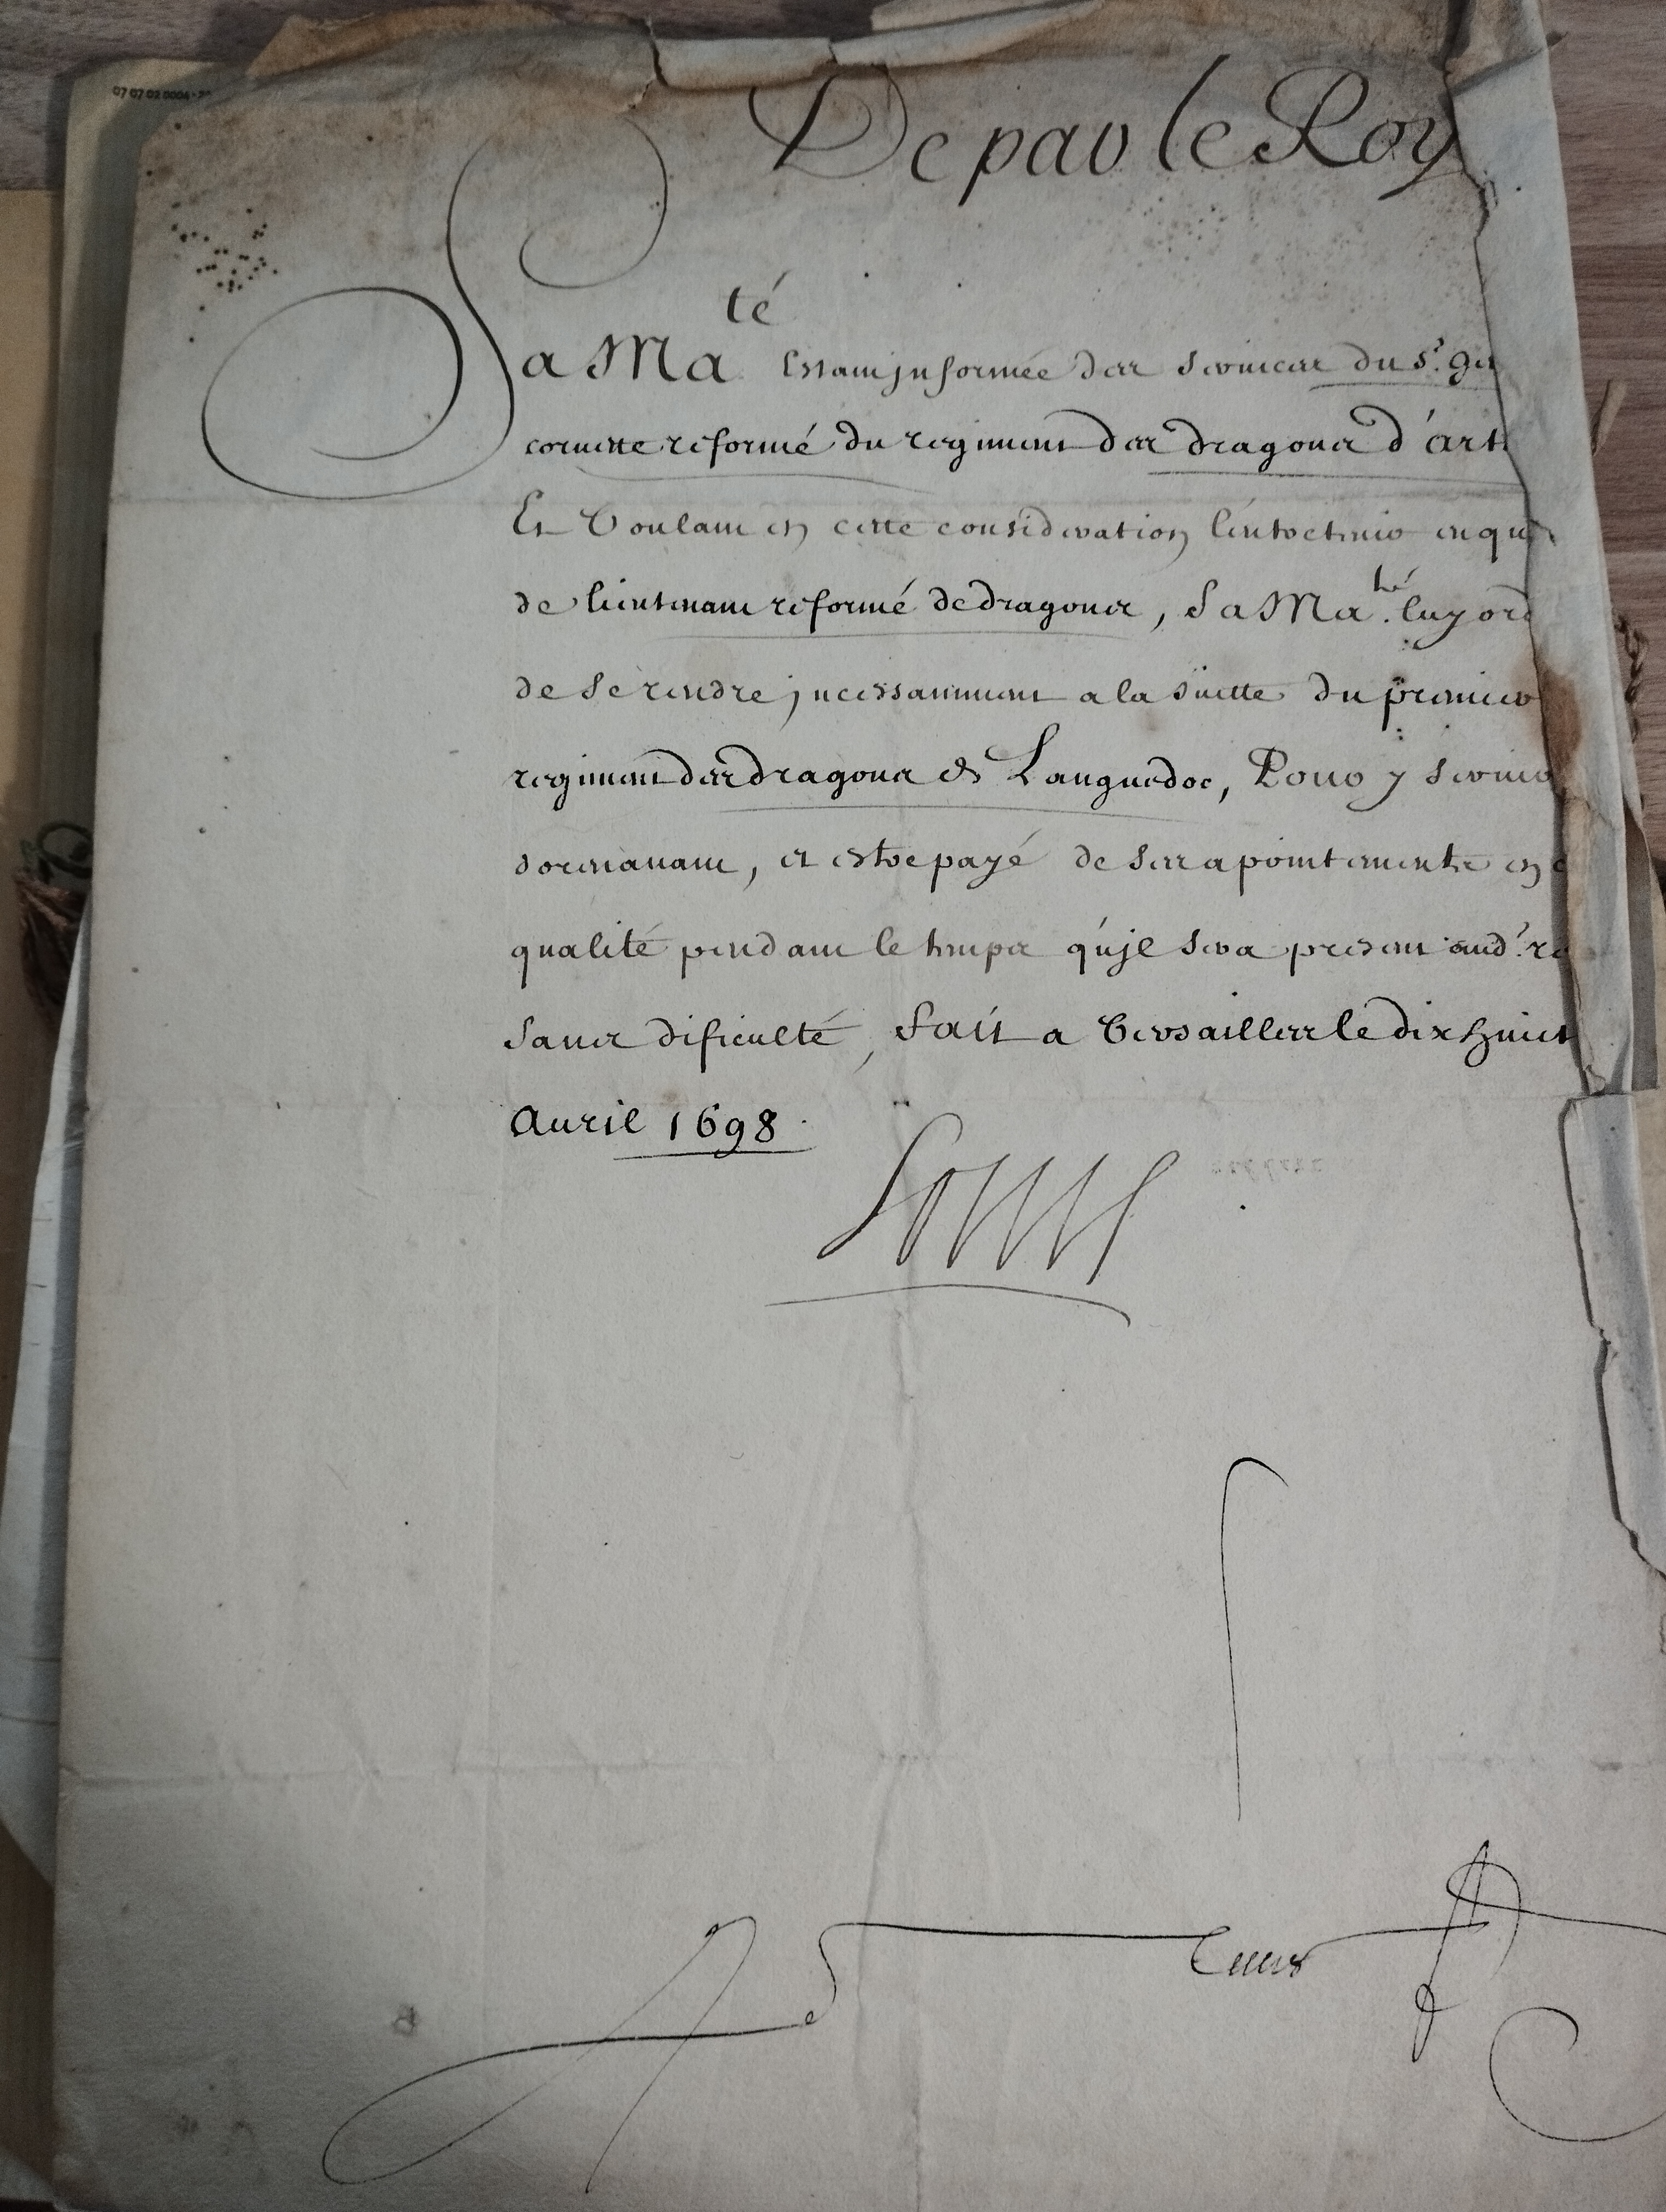 07 07 02 0004
De par le Roy
Sa Ma té Estant jnformée des services du S.r
cornette reformé du regiment des dragons d'art
Et Voulant en cette consideration l'entretenir en qu
de lieutenant reformé de dragons, Sa Ma té. luy ord
de se rendre jncessamment a la suitte du premier
regiment des dragons de Languedoc, Pour y servir
doresnavant, et estre payé de ses apointements en
qualité pendant le temps qu'jl sera present aud.' re
sans dificulté, Fait a Versailles le dix huict
Avril 1698
Louis